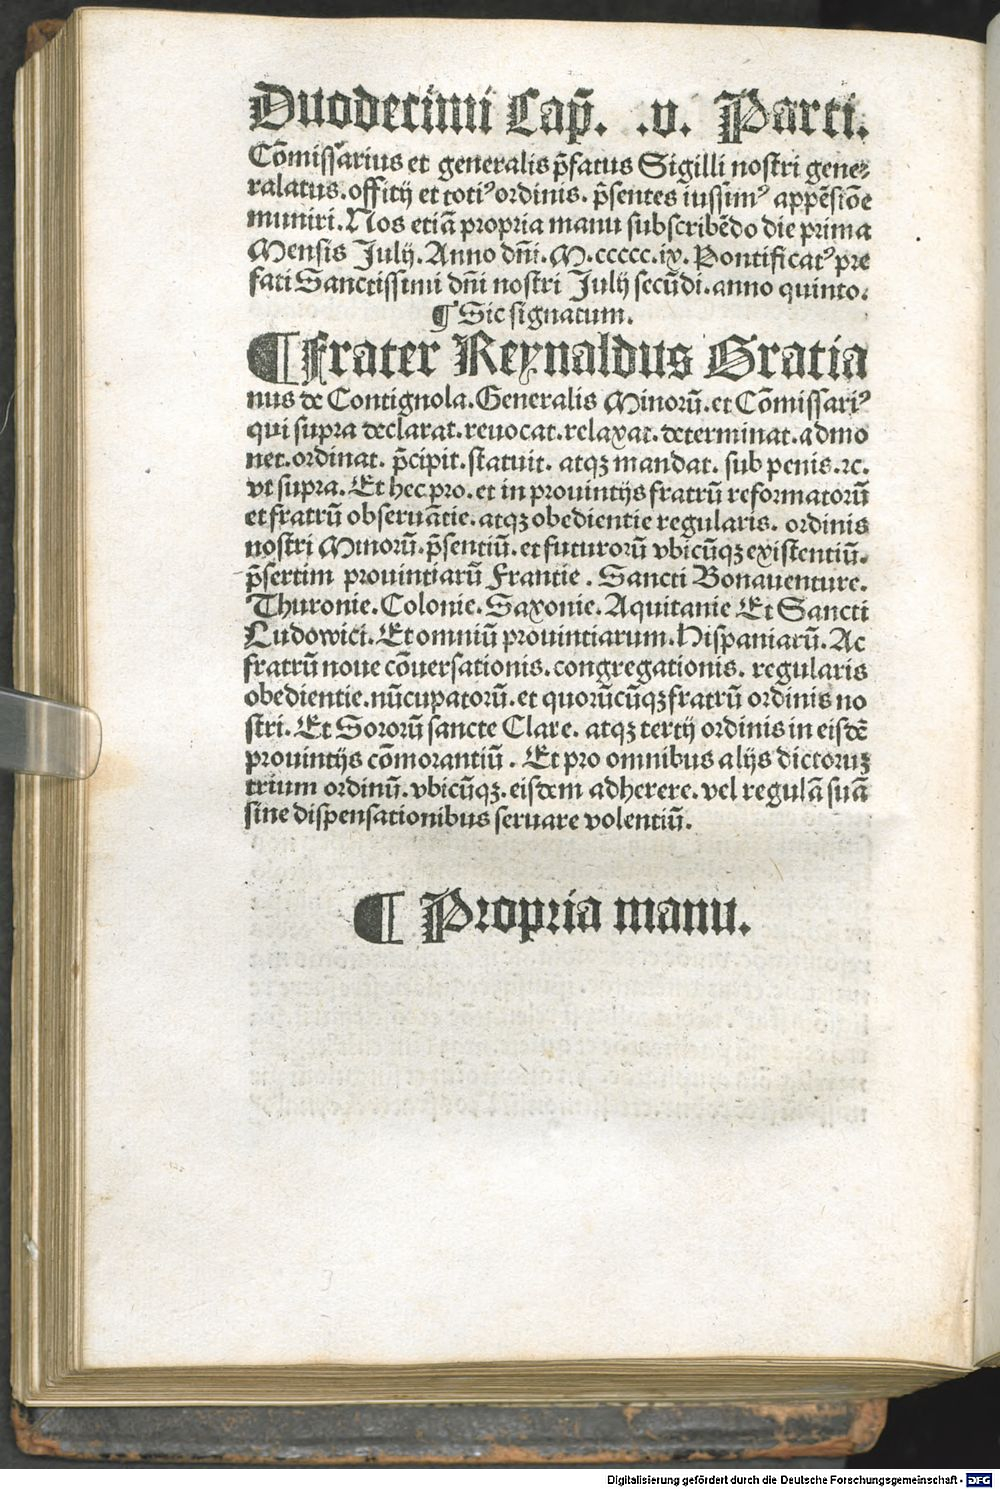 Duodecimi Cap̃. .v. Parti.
Cõmissarius et generalis p̃fatus Sigilli nostri gene⸗
ralatus.offitij et totiꝰ ordinis. p̃sentes iussimꝰ appẽsiõe
muniri.Nos etiã propria manu subscribẽdo die prima
Mensis Julij.Anno dñi.M.ccccc.ix.Pontificatꝰ pre
fati Sanctissimi dñi nostri Julij secũdi.anno quinto.
¶ Sic signatum.
¶ Frater Reynaldus Gratia
nus de Contignola.Generalis Minorũ.et Cõmissariꝰ
qui supra declarat.reuocat.relaxat.determinat.admo
net.ordinat. p̃cipit.statuit. atqꝫ mandat. sub penis.⁊c.
vt supra.Et hec pro.et in prouintijs fratrũ reformatorũ
et fratrũ obseruãtie.atqꝫ obedientie regularis. ordinis
nostri Minorũ.p̃sentiũ.et futurorũ vbicũqꝫ existentiũ.
p̃sertim prouintiarũ Frantie. Sancti Bonauenture.
Thuronie.Colonie.Saxonie.Aquitanie Et Sancti
Ludowici.Et omniũ prouintiarum.Hispaniarũ.Ac
fratrũ noue cõuersationis.congregationis. regularis
obedientie.nũcupatorũ.et quorũcũqꝫ fratrũ ordinis no
stri.Et Sororũ sancte Clare. atqꝫ tertij ordinis in eisdẽ
prouintijs cõmorantiũ. Et pro omnibus alijs dictoruꝫ
trium ordinũ.vbicũqꝫ.eisdem adherere.vel regulã suã
sine dispensationibus seruare volentiũ.
¶ Propria manu.
Digitalisierung gefördert durch die Deutsche Forschungsgemeinschaft - DFG